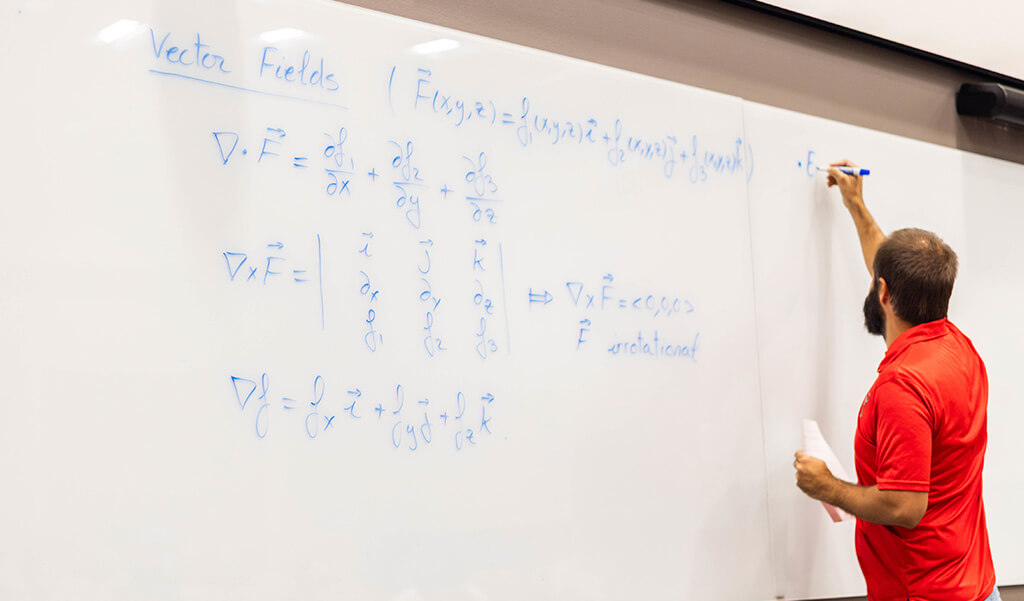 Vector Fields ( F⃗(x,y,z) = f₁(x,y,z) i⃗ + f₂(x,y,z) j⃗ + f₃(x,y,z) k⃗ )
∇· F⃗ = ∂f₁/∂x + ∂f₂/∂y + ∂f₃/∂z
∇×F⃗ = | i⃗ j⃗ k⃗ |
∂x ∂y ∂z
f₁ f₂ f₃
⇒ ∇×F⃗ = <0,0,0>
F⃗ irrotational
∇f = fₓ i⃗ + f_y j⃗ + f_z k⃗.
· E